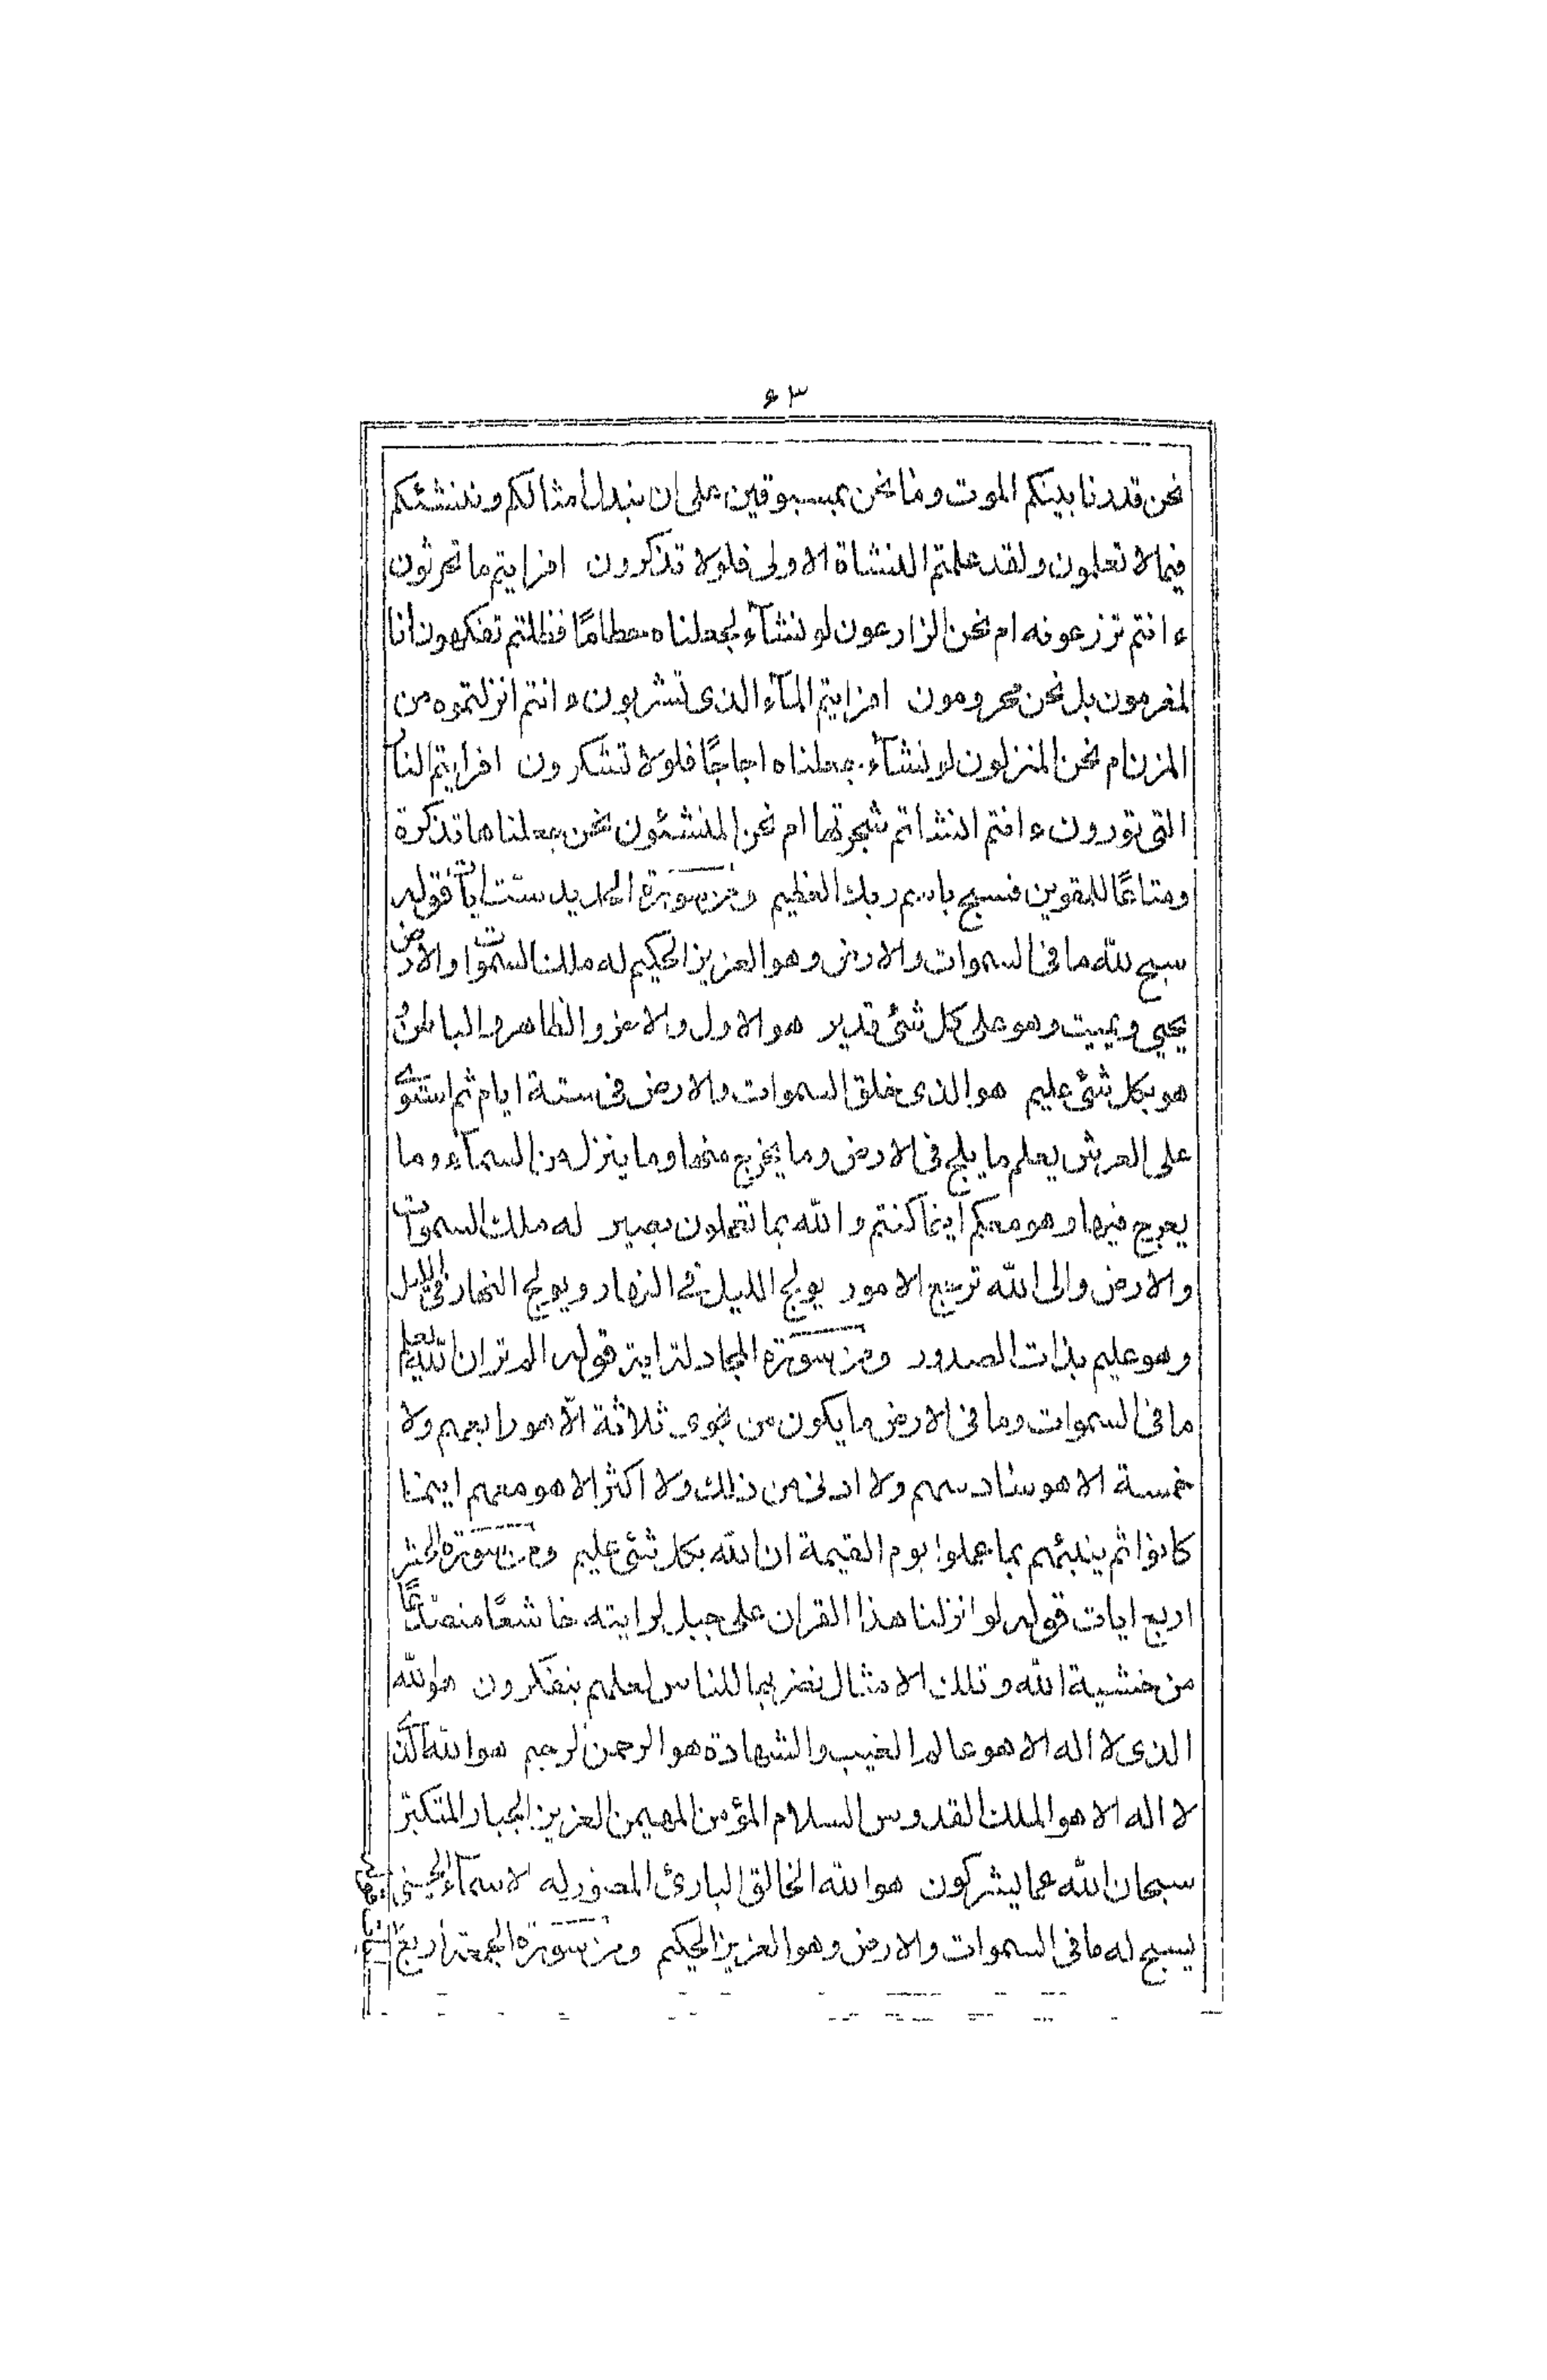 ٤٣
نحن قدرنا بينكم الموت وما نحن بمسبوقين على ان نبدل امثالكم وننشئكم
فيما لا تعلمون ولقد علمتم النشاة الاولى فلولا تذكرون افرايتم ما تحرثون
ء انتم تزرعونه ام نحن الزارعون لو نشآء لجعلناه حطامًا فظلتم تفكهون انا
لمغرمون بل نحن محرومون افرايتم المآء الذى تشربون ء انتم انزلتموه من
المزن ام نحن المنزلون لو نشآء جعلناه اجاجًا فلولا تشكرون افرايتم النار
التى تورون ء انتم انشاتم شجرتها ام نحن المنشئون نحن جعلناها تذكرة
ومتاعًا للمقوين فسبح باسم ربك العظيم ومن سورة الحديد ست ايات قوله
سبح لله ما فى السموات والارض وهو العزيز الحكيم له ملك السموات والارض
يحيي ويميت وهو على كل شئ قدير هو الاول والاخر والظاهر والباطن و
هو بكل شئ عليم هو الذى خلق السموات والارض فى ستة ايام ثم استوى
على العرش يعلم ما يلج فى الارض وما يخرج منها وما ينزل من السمآء وما
يعرج فيها وهو معكم اينما كنتم والله بما تعملون بصير له ملك السموات
والارض والى الله ترجع الامور يولج الليل فى النهار ويولج النهار فى الليل
وهو عليم بذات الصدور ومن سورة المجادلة اية قوله الم تر ان الله يعلم
ما فى السموات وما فى الارض ما يكون من نجوى ثلاثة الّا هو رابعهم ولا
خمسة الا هو سادسهم ولا ادنى من ذلك ولا اكثر الا هو معهم اينما
كانوا ثم ينبئهم بما عملوا يوم القيمة ان الله بكل شئ عليم ومن سورة الحشر
اربع ايات قوله لو انزلنا هذا القران على جبل لرايته خاشعًا متصدّعًا
من خشية الله وتلك الامثال نضربها للناس لعلهم يتفكرون هو الله
الذى لا اله الا هو عالم الغيب والشهادة هو الرحمن الرحيم هو الله الذى
لا اله الا هو الملك القدوس السلام المؤمن المهيمن العزيز الجبار المتكبر
سبحان الله عما يشركون هو الله الخالق البارئ المصور له الاسمآء الحسنى
يسبح له ما فى السموات والارض وهو العزيز الحكيم ومن سورة الجمعة اربع